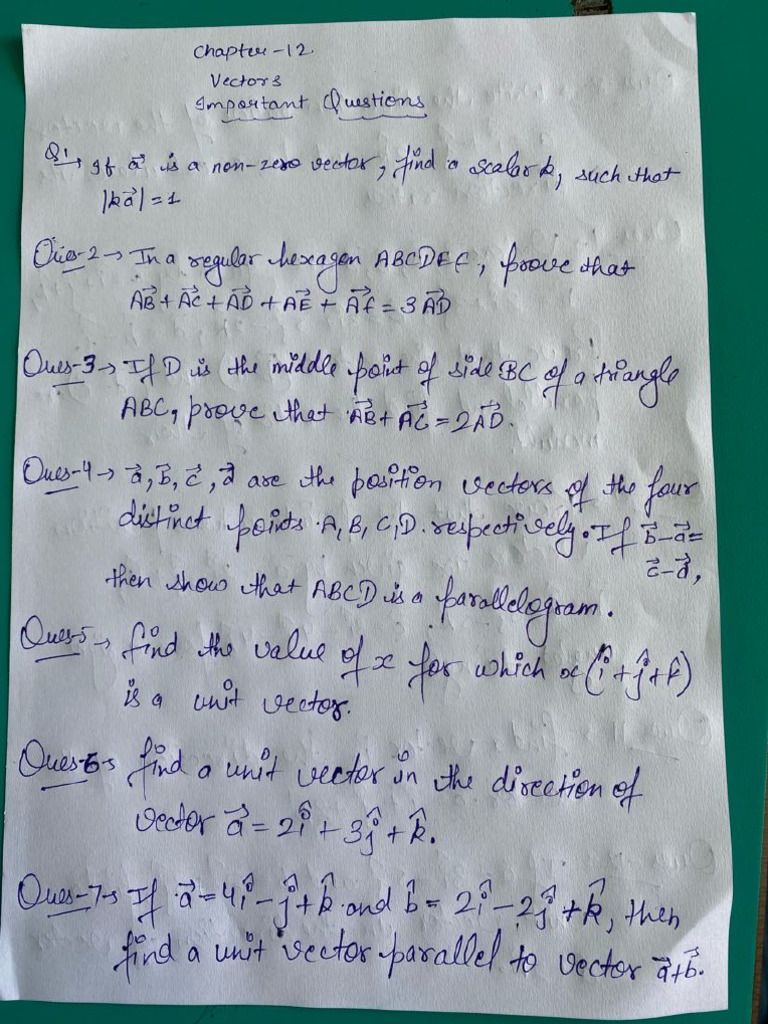 Chapter-12
Vectors
Important Questions
Q1→ If a⃗ is a non-zero vector, find a scalar k, such that
|ka⃗|=1
Ques-2→ In a regular hexagon ABCDEF, prove that
AB⃗+AC⃗+AD⃗+AE⃗+AF⃗=3AD⃗
Ques-3→ If D is the middle point of side BC of a triangle
ABC, prove that AB⃗+AC⃗=2AD⃗.
Ques-4→ a⃗,b⃗,c⃗,d⃗ are the position vectors of the four
distinct points A,B,C,D. respectively. If b⃗-a⃗=
c⃗-d⃗,
then show that ABCD is a parallelogram.
Ques-5→ find the value of x for which x(î+ĵ+k̂)
is a unit vector.
Ques-6→ find a unit vector in the direction of
vector a⃗=2î+3ĵ+k̂.
Ques-7→ If a⃗=4î-ĵ+k̂ and b̂=2î-2ĵ+k̂, then
find a unit vector parallel to vector a⃗+b⃗.